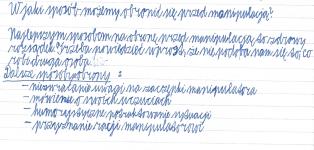 W jaki sposób możemy obronić się przed manipulacją?
Najlepszym sposobem na obronę przed manipulacją, to zdrowy
rozsądek. Trzeba powiedzieć wprost, że nie podoba nam się to, co
robi druga osoba.
Dalsze sposoby obrony:
- niezwracanie uwagi na zaczepki manipulatora
- mówienie o swoich uczuciach
- humorystyczne potraktowanie sytuacji
- przyznanie racji manipulatorowi